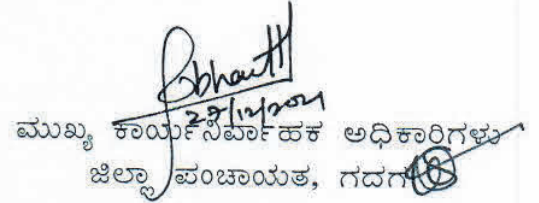 27/12/2021
ಮುಖ್ಯ ಕಾರ್ಯನಿರ್ವಾಹಕ ಅಧಿಕಾರಿಗಳು
ಜಿಲ್ಲಾ ಪಂಚಾಯತ, ಗದಗ